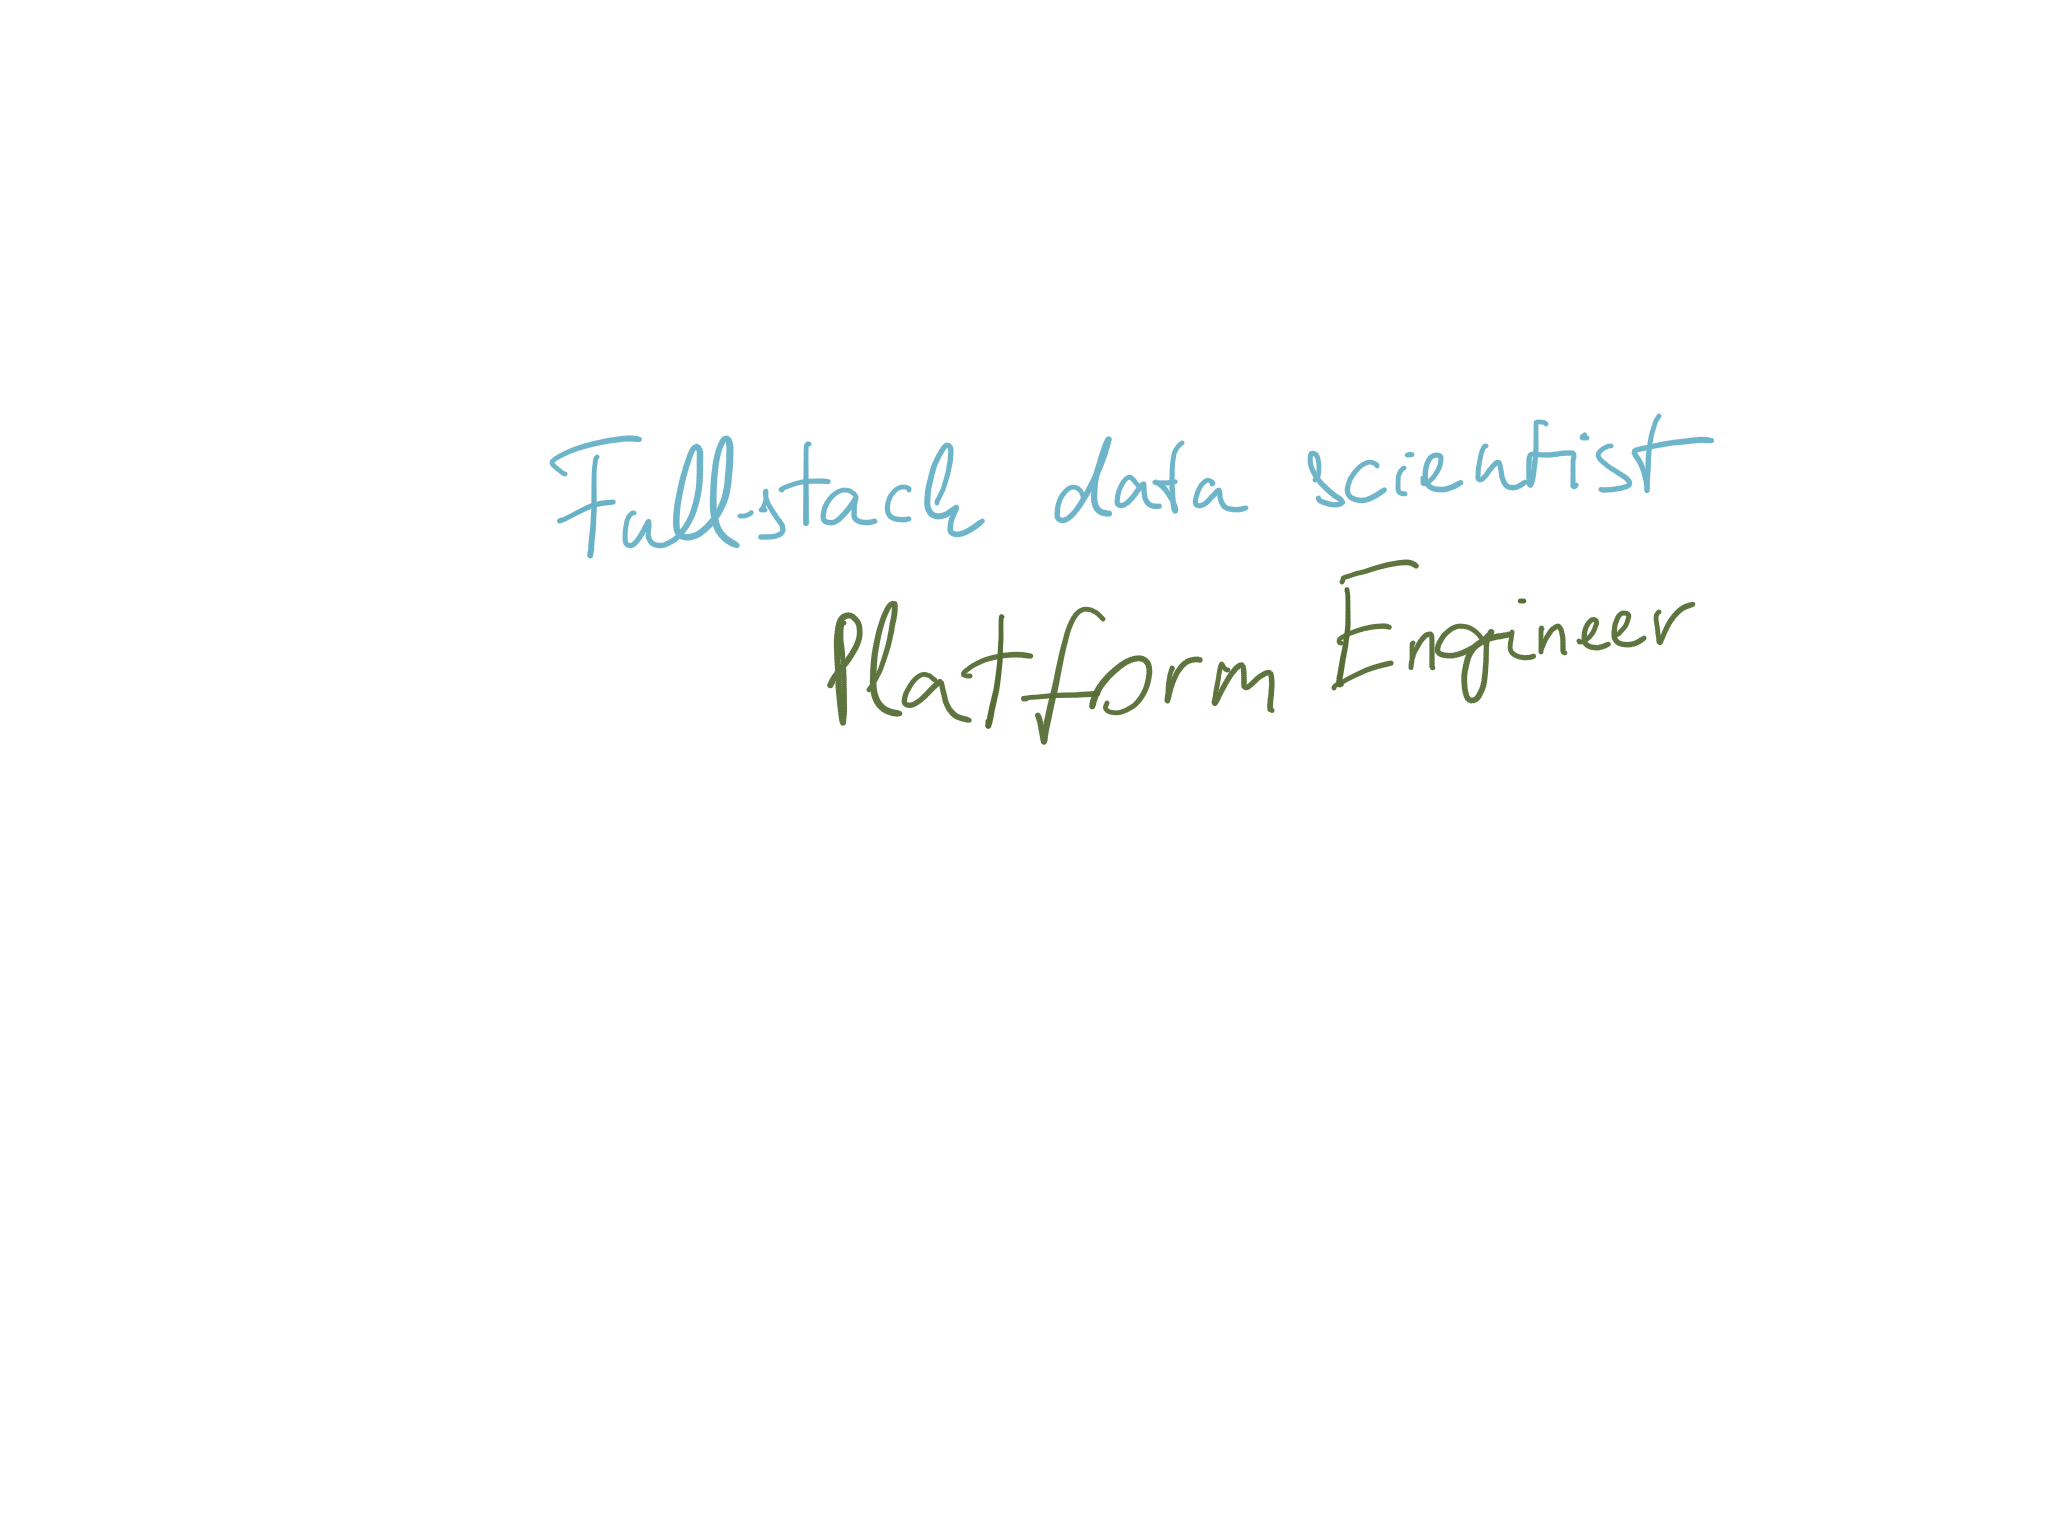 Full-stack data scientist
Platform Engineer